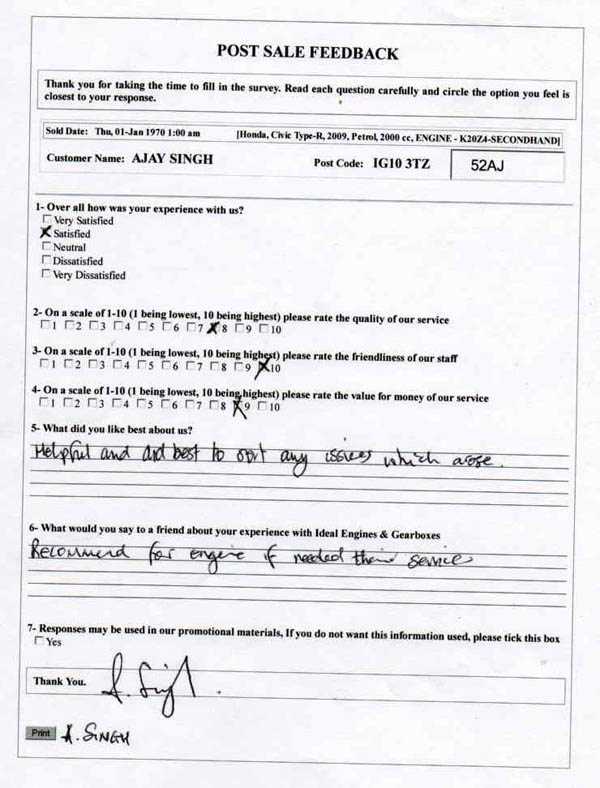 POST SALE FEEDBACK
Thank you for taking the time to fill in the survey. Read each question carefully and circle the option you feel is
closest to your response.
Sold Date: Thu, 01-Jan 1970 1:00 am [Honda, Civic Type-R, 2009, Petrol, 2000 cc, ENGINE - K20Z4-SECONDHAND]
Customer Name: AJAY SINGH Post Code: IG10 3TZ 52AJ
1- Over all how was your experience with us?
Very Satisfied
Satisfied
Neutral
Dissatisfied
Very Dissatisfied
2- On a scale of 1-10 (1 being lowest, 10 being highest) please rate the quality of our service
1 2 3 4 5 6 7 8 9 10
3- On a scale of 1-10 (1 being lowest, 10 being highest) please rate the friendliness of our staff
1 2 3 4 5 6 7 8 9 10
4- On a scale of 1-10 (1 being lowest, 10 being highest) please rate the value for money of our service
1 2 3 4 5 6 7 8 9 10
5- What did you like best about us?
Helpful and did best to sort any issues which arose.
6- What would you say to a friend about your experience with Ideal Engines & Gearboxes
Recommend for engine if needed their services
7- Responses may be used in our promotional materials, If you do not want this information used, please tick this box
Yes
Thank You. A. Singh
Print A. SINGH